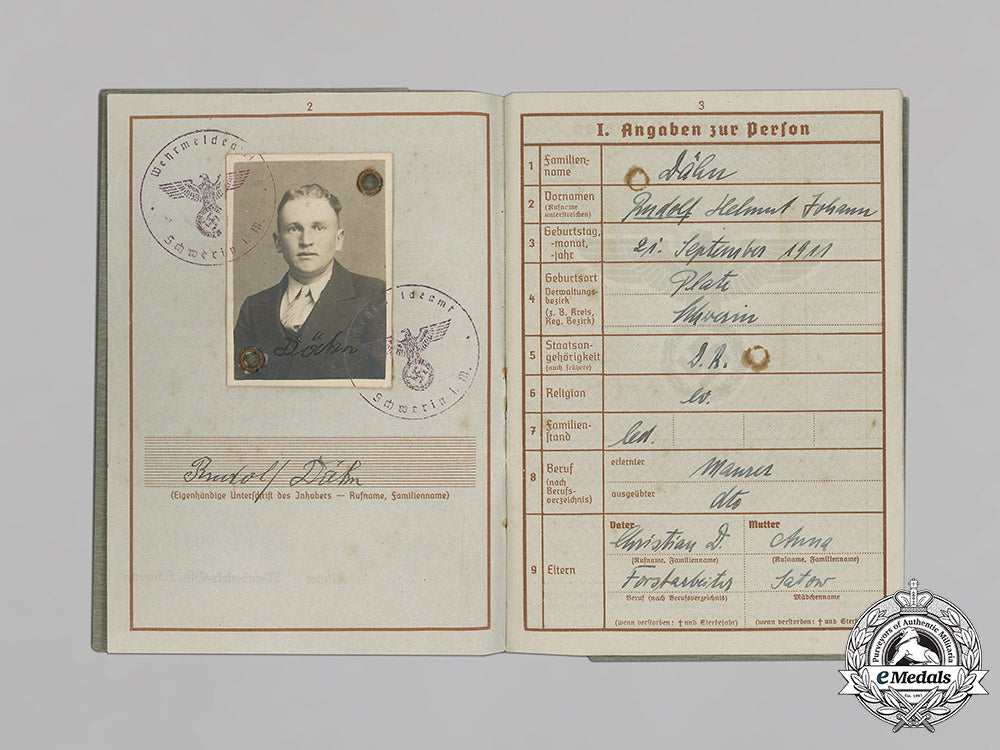 2
Wehrmeldeamt
Schwerin i. M.
Dähn
Wehrmeldeamt
Schwerin i. M.
Rudolf Dähn
(Eigenhändige Unterschrift des Inhabers — Rufname, Familienname)
3
I. Angaben zur Person
1 Familien-
name
Dähn
2 Vornamen
(Rufname
unterstreichen)
Rudolf Helmut Johann
3 Geburtstag,
-monat,
-jahr
21. September 1911
4 Geburtsort
Verwaltungs-
bezirk
(z. B. Kreis,
Reg. Bezirk)
Plate
Schwerin
5 Staatsan-
gehörigkeit
(auch frühere)
D. R.
6 Religion
ev.
7 Familien-
stand
led.
8 Beruf
(nach
Berufs-
verzeichnis)
erlernter Maurer
ausgeübter dto
9 Eltern
Vater Mutter
Christian D. Anna
(Rufname, Familienname) (Rufname, Familienname)
Forstarbeiter Satow
Beruf (nach Berufsverzeichnis) Mädchenname
(wenn verstorben: † und Sterbejahr) (wenn verstorben: † und Sterbe
Purveyors of Authentic Militaria
eMedals